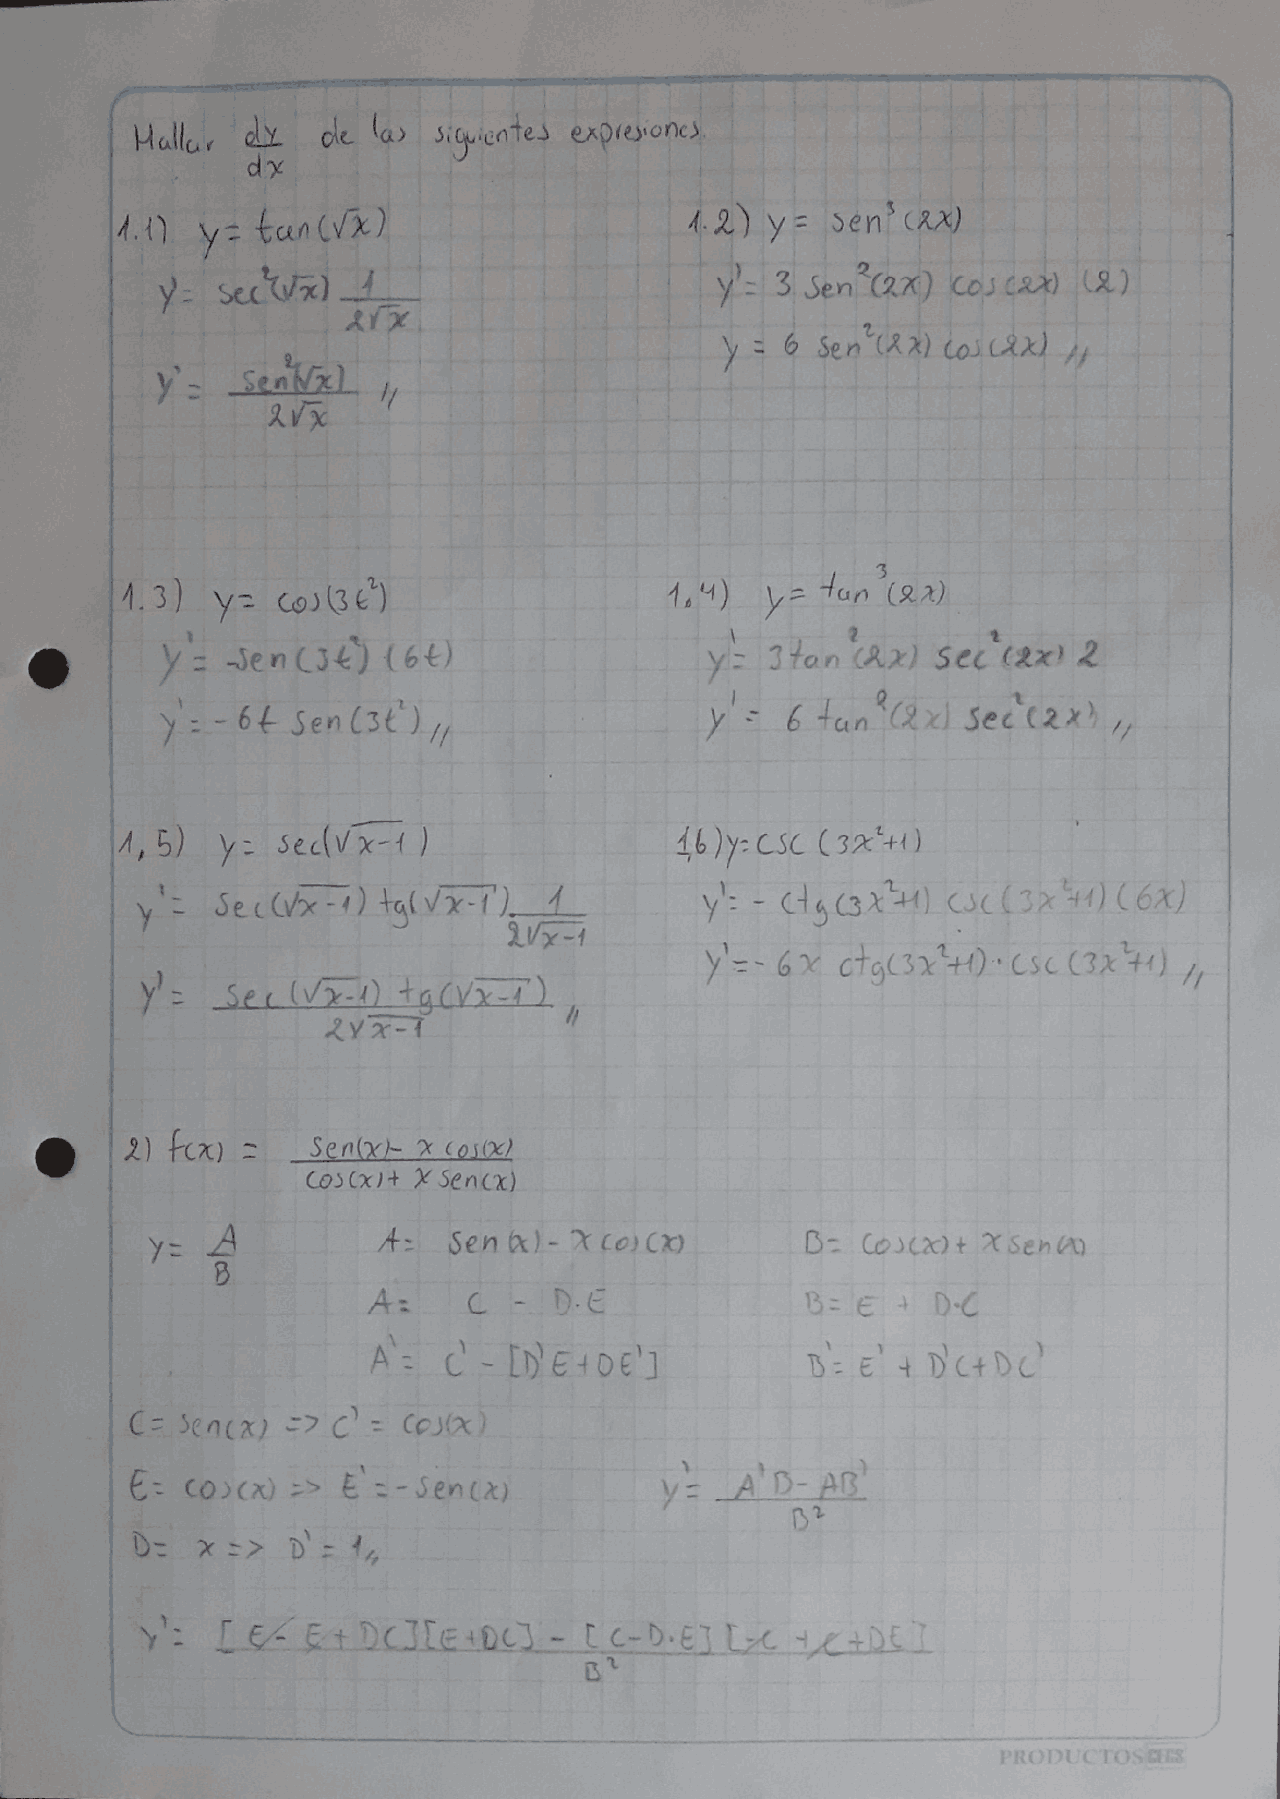 Hallar dy/dx de las siguientes expresiones.
1.1) y = tan(√x)
y' = sec²(√x) 1/(2√x)
y' = sen²(√x)/(2√x) //
1.2) y = sen³(2x)
y' = 3 sen²(2x) cos(2x) (2)
y = 6 sen²(2x) cos(2x) //
1.3) y = cos(3t²)
y' = -sen(3t²) (6t)
y' = -6t sen(3t²) //
1,4) y = tan³(2x)
y' = 3tan²(2x) sec²(2x) 2
y' = 6 tan²(2x) sec²(2x) //
1,5) y = sec(√(x-1))
y' = sec(√(x-1)) tg(√(x-1)) . 1/(2√(x-1))
y' = sec(√(x-1)) tg(√(x-1))/(2√(x-1)) //
1,6) y = csc(3x²+1)
y' = -ctg(3x²+1) csc(3x²+1) (6x)
y' = -6x ctg(3x²+1) · csc(3x²+1) //
2) f(x) = (sen(x) - x cos(x))/(cos(x) + x sen(x))
y = A/B A = sen(x) - x cos(x) B = cos(x) + x sen(x)
A = C - D.E B = E + D.C
A' = C' - [D'E + DE'] B' = E' + D'C + DC'
C = sen(x) => C' = cos(x)
E = cos(x) => E' = -sen(x) y' = (A'B - AB')/B²
D = x => D' = 1 //
y' = ([E - E + DC][E + DC] - [C - D.E][-C + C + DE])/B²
PRODUCTOS